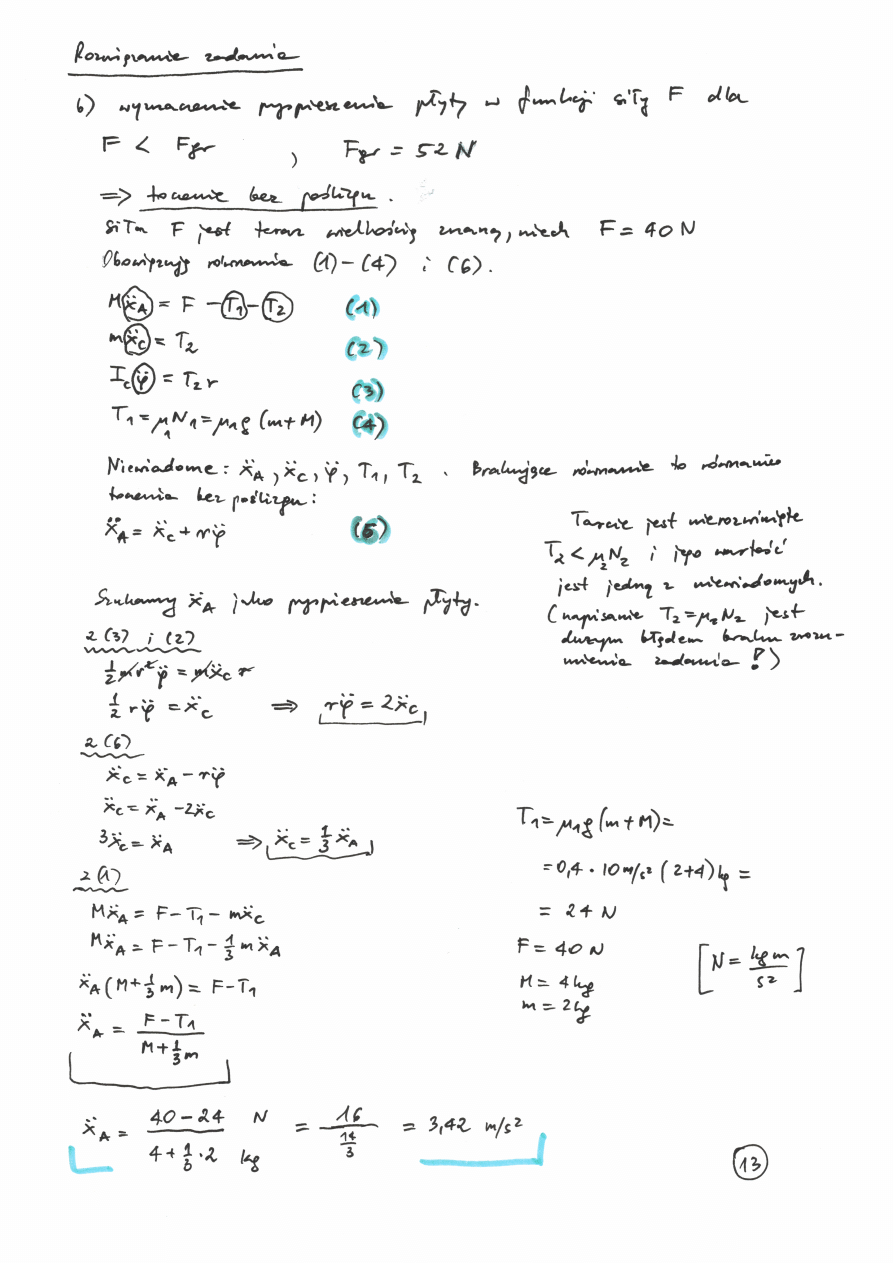 Rozwiązanie zadania
b) wyznaczenie przyspieszenia płyty w funkcji siły F dla
F < Fgr , Fgr = 52 N
=> toczenie bez poślizgu.
Siła F jest teraz wielkością znaną, niech F = 40 N
Obowiązują równania (1)-(4) i (6).
Mẍ_A = F - T₁ - T₂ (1)
mẍ_C = T₂ (2)
I_C φ̈ = T₂ r (3)
T₁ = μ₁N₁ = μ₁g (m+M) (4)
Niewiadome: ẍ_A, ẍ_C, φ̈, T₁, T₂. Brakujące równanie to równanie
toczenia bez poślizgu:
ẍ_A = ẍ_C + rφ̈ (6)
Tarcie jest nierozwinięte
T₂ < μ₂N₂ i jego wartość
jest jedną z niewiadomych.
(napisanie T₂ = μ₂N₂ jest
dużym błędem braku zrozu-
mienia zadania!)
Szukamy ẍ_A jako przyspieszenie płyty.
z (3) i (2)
½ mr² φ̈ = mẍ_C r
½ rφ̈ = ẍ_C => rφ̈ = 2ẍ_C
z (6)
ẍ_C = ẍ_A - rφ̈
ẍ_C = ẍ_A - 2ẍ_C
3ẍ_C = ẍ_A => ẍ_C = ⅓ ẍ_A
z (1)
Mẍ_A = F - T₁ - mẍ_C
Mẍ_A = F - T₁ - ⅓ mẍ_A
ẍ_A (M + ⅓ m) = F - T₁
ẍ_A = (F - T₁) / (M + ⅓ m)
T₁ = μ₁g (m+M) =
= 0,4 · 10 m/s² (2+4) kg =
= 24 N
F = 40 N
M = 4 kg
m = 2 kg
[N = kg m / s²]
ẍ_A = (40 - 24) / (4 + ⅓ · 2) N / kg = 16 / (14/3) = 3,42 m/s²
13